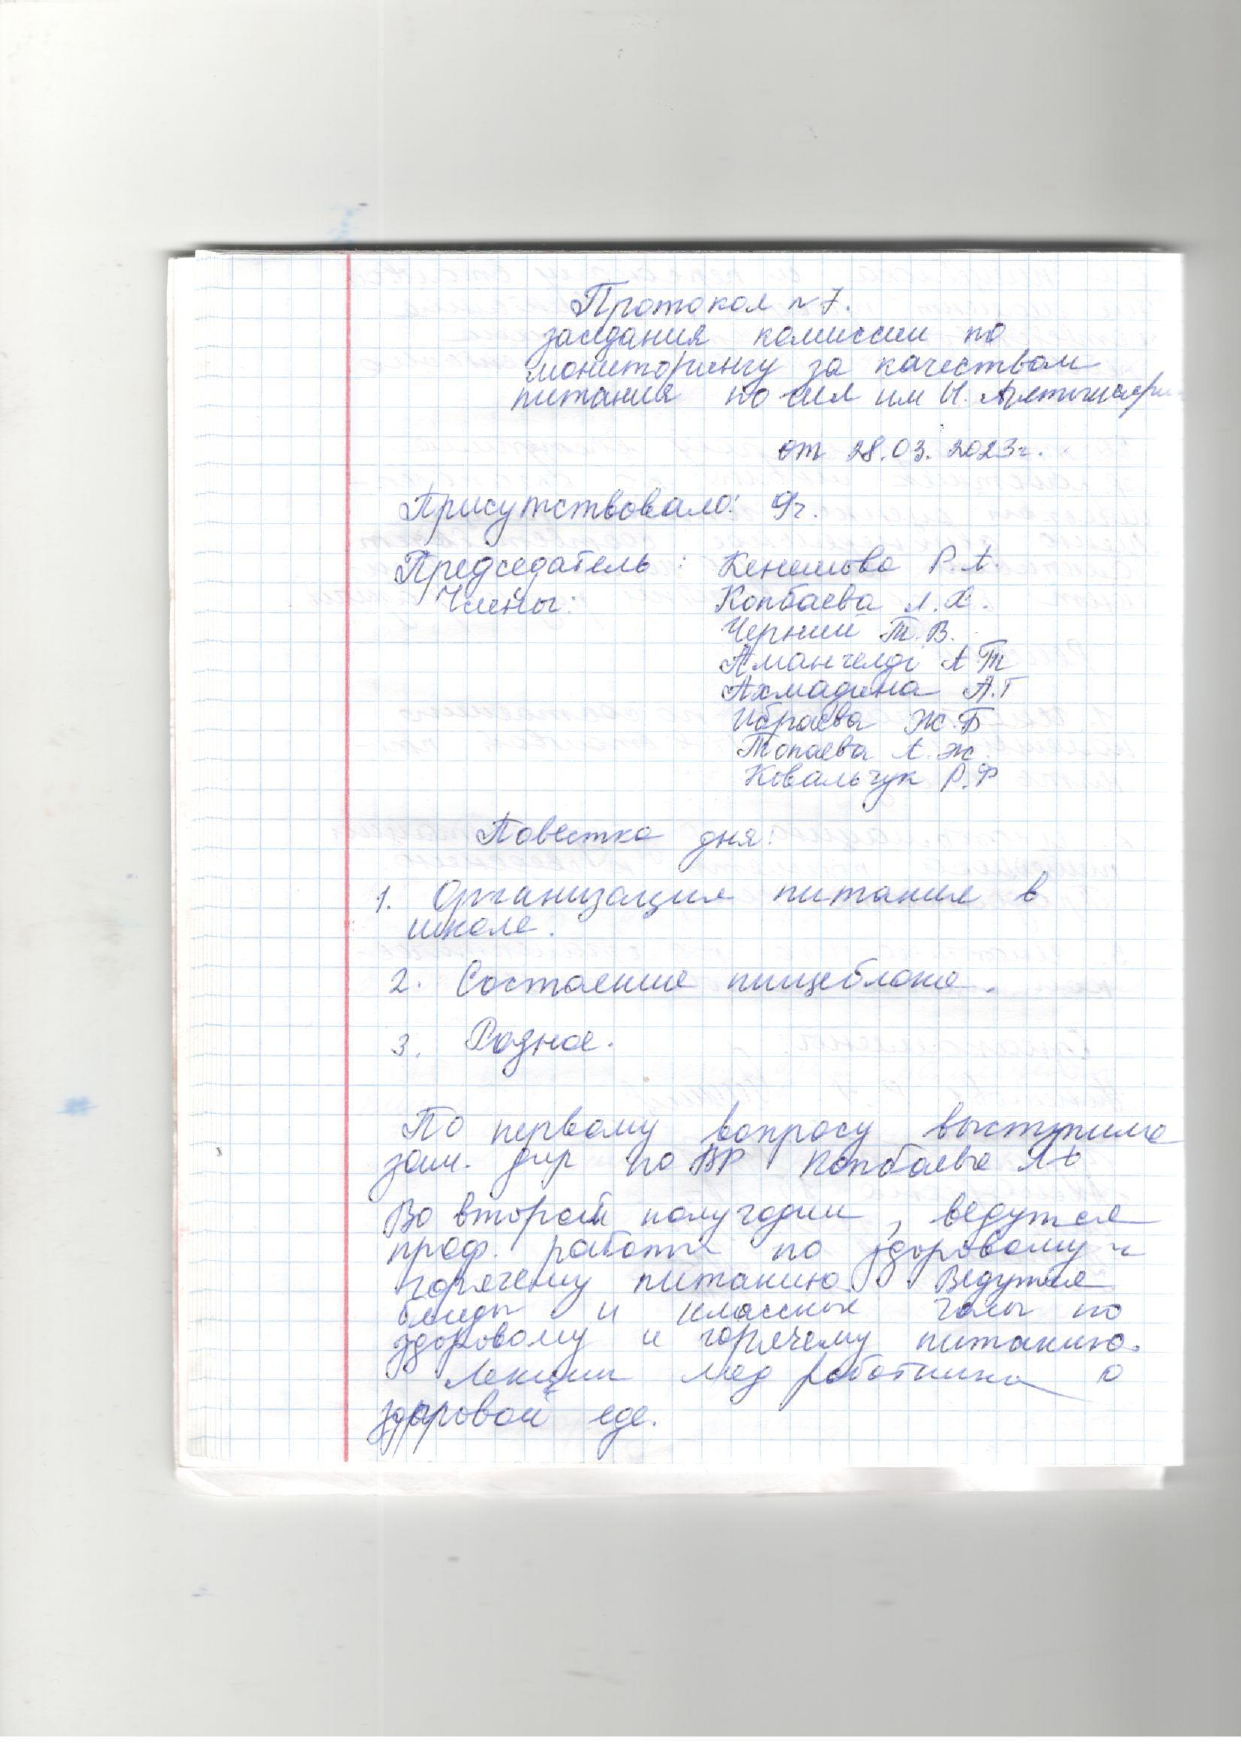 Протокол № 7.
заседания комиссии по
мониторингу за качеством
питания по сшл им Ы. Алтынсари
от 28.03.2023г.
Присутствовало: 9ч.
Председатель: Кенешова Р.А.
Члены: Копбаева Л.Х.
Черний Т.В.
Аманчелді А.Т
Ахмадина А.Г
Ибраева Ж.Б
Топаева А.Ж.
Ковальчук Р.Ф
Повестка дня:
1. Организация питания в
школе.
2. Состояние пищеблока.
3. Разное.
По первому вопросу выступила
зам. дир по ВР Копбаева
Во втором полугодии, ведутся
проф. работы по здоровому и
горячему питанию. Ведутся
беседы и классные часы по
здоровому и горячему питанию.
Лекции мед работника о
здоровой еде.